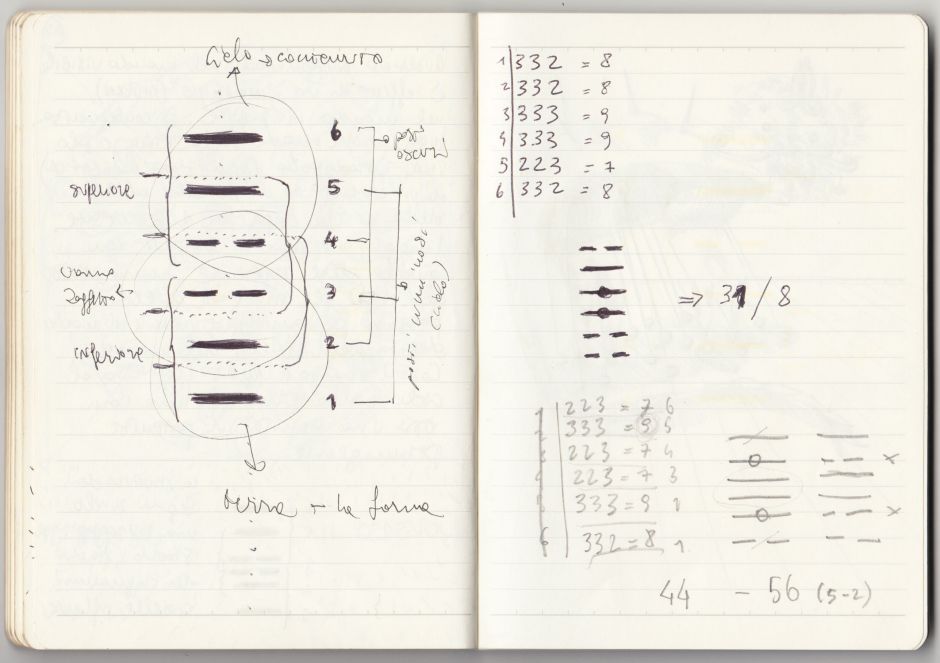 Cielo → contenuto
6
superiore
5
4
3
inferiore
2
1
terra - la forma
posti luminosi
1 332 = 8
2 332 = 8
3 333 = 9
4 333 = 9
5 223 = 7
6 332 = 8
⇒ 31/8
223 = 7 6
333 = 9 5
223 = 7 4
223 = 7 3
333 = 9
6 332 = 8 1
x
x
44 - 56 (5-2)